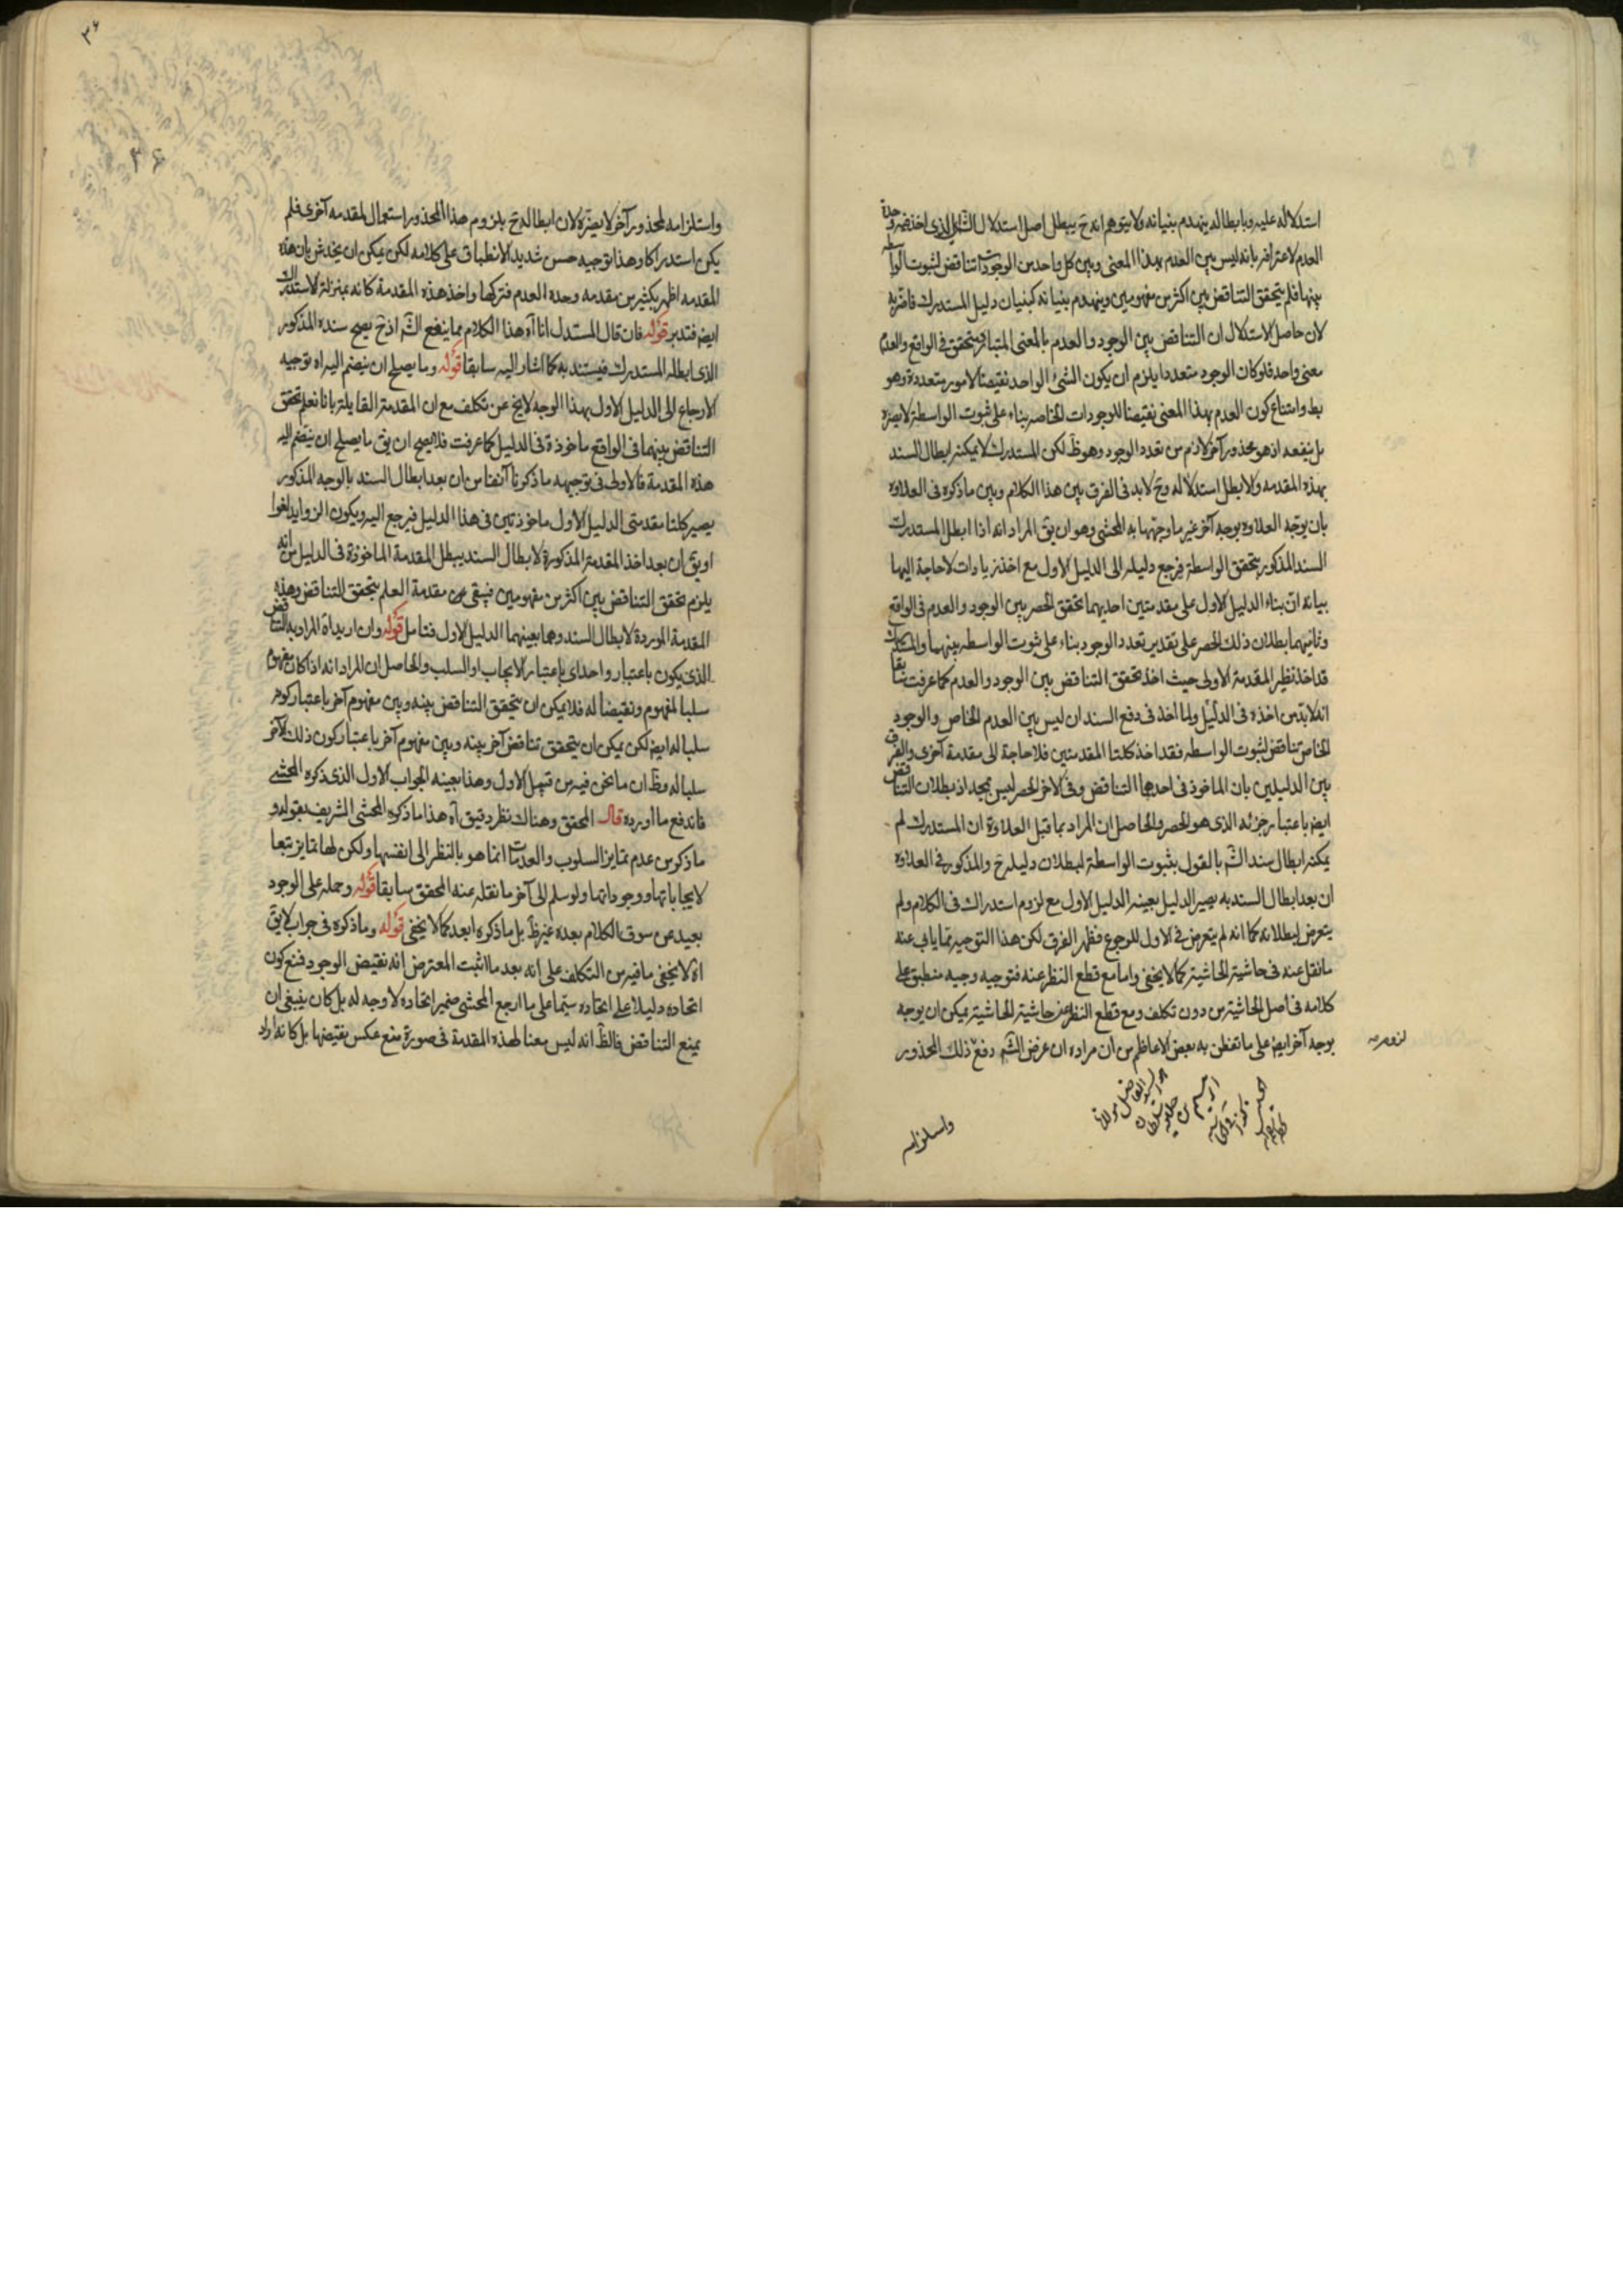 استدلاله عليه وبابطاله ينهدم بنيانه ولا يتوهم انه ح يبطل اصل استدلال الش الذى اخذ فيه وحدة
العدم لاعترافه بانه ليس بين العدم بهذا المعنى وبين كل واحد من الوجودات تناقض لثبوت الواسطه
بينها فلم يتحقق التناقض بين اكثر من مفهومين وينهدم بنيانه كبنيان دليل المستدرك فاضر به
لان حاصل الاستدلال ان التناقض بين الوجود والعدم بالمعنى المتبادر متحقق فى الواقع والعدم
معنى واحد فلو كان الوجود متعددا يلزم ان يكون الشئ الواحد نقيضا لامور متعددة وهو
بط وامتناع كون العدم بهذا المعنى نقيضا للوجودات الخاصه بناء على ثبوت الواسطة لا يضره
بل ينفعه اذ هو محذور آخر لازم من تعدد الوجود وهو ظ لكن المستدرك لا يمكنه ابطال السند
بهذه المقدمه والا بطل استدلاله وح لابد فى الفرق بين هذا الكلام وبين ما ذكره فى العلاوه
بان يوجه العلاوه بوجه آخر غير ما وجهها به المحشى وهو ان يق المراد انه اذا ابطل المستدرك
السند المذكور بتحقق الواسطة فيرجع دليله الى الدليل الاول مع اخذ زيادات لا حاجة اليها
بيانه ان بناء الدليل الاول على مقدمتين احديهما تحقق الحصر بين الوجود والعدم فى الواقع
وثانيهما بطلان ذلك الحصر على تقدير تعدد الوجود بناء على ثبوت الواسطه بينهما والمستدرك
قد اخذ نظير المقدمة الاولى حيث اخذ تحقق التناقض بين الوجود والعدم كما عرفت سابقا
انه لابد من اخذه فى الدليل ولما اخذ فى دفع السند ان ليس بين العدم الخاص والوجود
الخاص تناقض لثبوت الواسطه فقد اخذ كلتا المقدمتين فلا حاجة الى مقدمة آخرى والفرق
بين الدليلين بان الماخوذ فى احدهما التناقض وفى الاخر الحصر ليس بمجد اذ بطلان التناقض
ايضا باعتبار جزئه الذى هو الحصر والحاصل ان المراد بما قبل العلاوة ان المستدرك لم
يمكنه ابطال سند الش بالقول بثبوت الواسطة لبطلان دليله ح والمذكور فى العلاوه
ان بعد ابطال السند به يصير الدليل بعينه الدليل الاول مع لزوم استدراك فى الكلام ولم
يتعرض لبطلانه كما انه لم يتعرض فى الاول للرجوع فظهر الفرق لكن هذا التوجيه مما يابى عنه
ما نقل عنه فى حاشية الحاشية كما لا يخفى واما مع قطع النظر عنه فتوجيه وجيه منطبق على
كلامه فى اصل الحاشية من دون تكلف ومع قطع النظر عن حاشية الحاشية يمكن ان يوجه
بوجه آخر ايضا على ما تفطن به بعض الاعاظم من ان مراده ان غرض الش دفع ذلك المحذور
واستلزامه
٣٦
٣۶
واستلزامه لمحذور آخر لا يضره لان ابطاله ح بلزوم هذا المحذور استعمال لمقدمه آخرى فلم
يكن استدراكا وهذا توجيه حسن شديد الانطباق على كلامه لكن يمكن ان يخدش بان هذه
المقدمه اظهر بكثير من مقدمه وحده العدم فتركها واخذ هذه المقدمة كانه بمنزلة الاستدراك
ايضا فتدبر قوله فان قال المستدل انا آه هذا الكلام مما ينفع الش اذ ح يصح سنده المذكور
الذى ابطله المستدرك فيستند به كما اشار اليه سابقا قوله وما يصلح ان ينضم اليه اه توجيه
الارجاع الى الدليل الاول بهذا الوجه لا يخ عن تكلف مع ان المقدمة القايلة بانا نعلم تحقق
التناقض بينهما فى الواقع ماخوذة فى الدليل كما عرفت فلا يصح ان يق ما يصلح ان ينضم اليه
هذه المقدمة فالاولى فى توجيهه ما ذكرنا آنفا من ان بعد ابطال السند بالوجه المذكور
يصير كلتا مقدمتى الدليل الاول ماخوذتين فى هذا الدليل فيرجع اليه ويكون الزوايد لغوا
او يق ان بعد اخذ المقدمة المذكورة لابطال السند يبطل المقدمة الماخوذة فى الدليل من انه
يلزم تحقق التناقض بين اكثر من مفهومين فيبقى من مقدمة العلم بتحقق التناقض وهذه
المقدمة الموردة لابطال السند وهما بعينهما الدليل الاول فتامل قوله وان اريد اه المراد به التناقض
الذى يكون باعتبار واحد اى باعتبار الايجاب او السلب والحاصل ان المراد انه اذا كان مفهوم
سلبا لمفهوم ونقيضا له فلا يمكن ان يتحقق التناقض بينه وبين مفهوم آخر باعتبار كونه
سلبا له ايضا لكن يمكن ان يتحقق تناقض آخر بينه وبين مفهوم آخر باعتبار كون ذلك الآخر
سلبا له وظ ان ما نحن فيه من قبيل الاول وهذا بعينه الجواب الاول الذى ذكره المحشى
فاندفع ما اورده قال المحقق وهناك نظر دقيق آه هذا ما ذكره المحشى الشريف بقوله و
ما ذكر من عدم تمايز السلوب والعدمات انما هو بالنظر الى انفسها ولكن لها تمايز تبعا
لايجاباتها ووجوداتها ولو سلم الى آخر ما نقله عنه المحقق سابقا قوله وحمله على الوجود
بعيد عن سوق الكلام بعده غير ظ بل ما ذكره ابعد كما لا يخفى قوله وما ذكره فى جواب لا يق
اه لا يخفى ما فيه من التكلف على انه بعد ما اثبت المعترض انه نقيض الوجود فمنع كون
اتحاده دليلا على اتحاده سيما على ما ارجع المحشى ضمير اتحاده لا وجه له بل كان ينبغى ان
يمنع التناقض فالظ انه ليس معنا لهذه المقدمة فى صورة منع عكس نقيضها بل كانه اراد